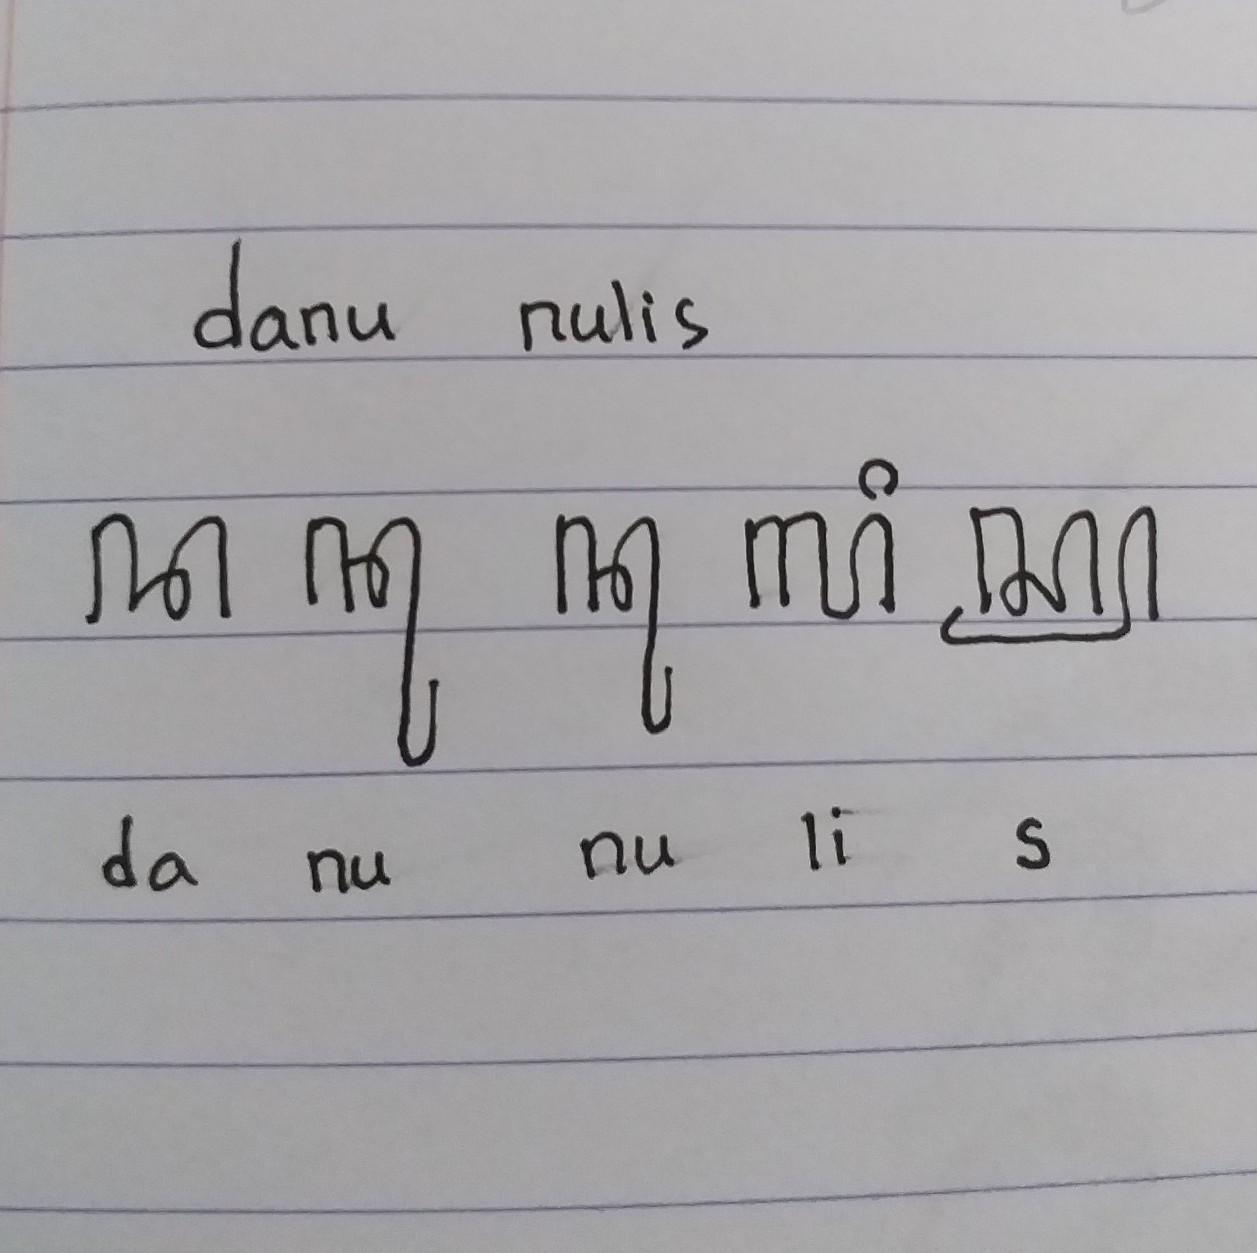 danu nulis
ꦢ ꦤꦸ ꦤꦸ ꦭꦶ ꦱ꧀
da nu nu li s